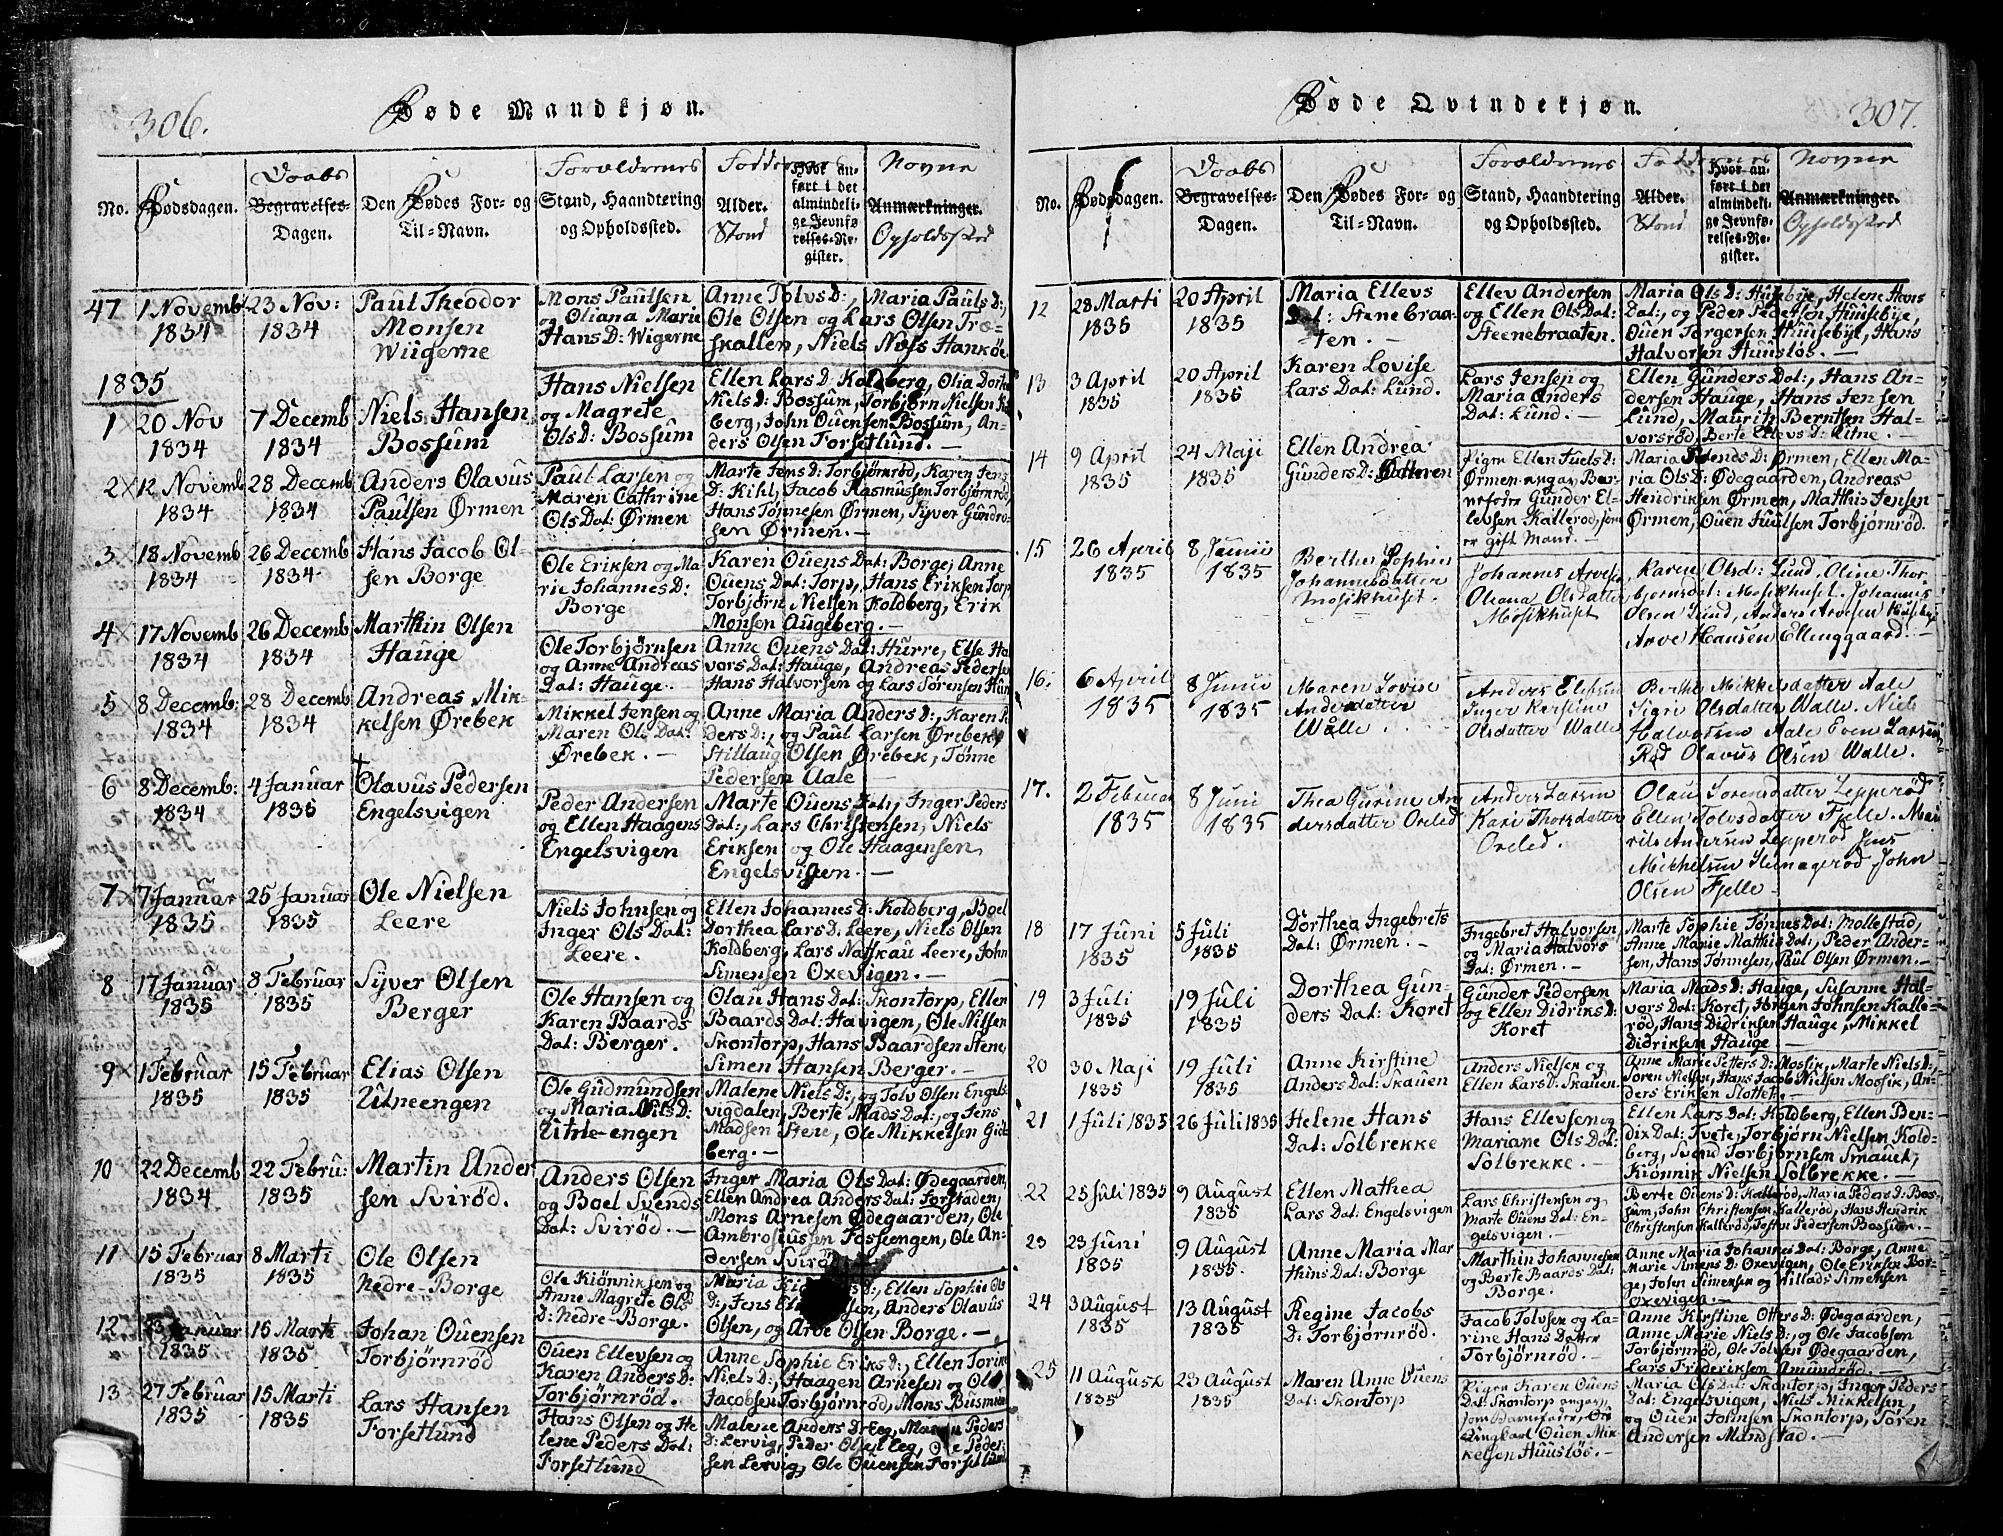 306.
Føde Mandkjøn.
Forældrenes
Fadderenes
Navne
No.
Fødsdagen.
Daabs
Begravelses-
Dagen.
Den Fødes For- og
Til-Navn.
Stand, Haandtering
og Opholdssted.
Alder.
Stand
Hvor an-
ført i det
almindeli-
ge Jevnfø-
relses-Re-
gister.
Anmærkninger.
Opholdssted
47
1 Novemb
1834
23 Nov:
1834
Paul Theodor
Monsen
Wiigerne
Mons Paulsen
og Oliana Marie
Hans D: Wigerne
Anne Tolvs D:, Maria Pauls D:,
Ole Olsen og Lars Olsen Træ-
skallen, Niels Næss Hankøe
1835
1
20 Nov
1834
7 Decemb
1834
Niels Hansen
Bossum
Hans Nielsen
og Magrete
Ols D: Bossum
Ellen Lars D: Koldberg, Olia Dorthe
Niels D: Bossum, Torbjørn Nielsen Kol
berg, John Ouensen Bossum, An-
ders Olsen Forsetlund. —
2
12 Novemb
1834
28 Decemb
1834
Anders Olavus
Paulsen Ørmen
Paul Larsen og
Maren Cathrine
Ols Dat: Ørmen
Marte Jens D: Torbjørnrød, Karen Jens
D: Kihl, Jacob Rasmussen Torbjørnrød
Hans Tønnesen Ørmen, Syver Gundro-
sen Ørmen. —
3
18 Novemb
1834
26 Decemb
1834
Hans Jacob Ol-
sen Borge
Ole Eriksen og Ma-
rie Johannes D:
Borge
Karen Ouens Dat: Borge, Anne
Ouens Dat: Torp, Hans Eriksen Torp
Torbjørn Nielsen Koldberg, Erik
Monsen Augeberg. —
4
17 Novemb
1834
26 Decemb
1834
Marthin Olsen
Hauge
Ole Torbjørnsen
og Anne Andreas
Dat: Hauge. —
Anne Ouens Dat: Hurre, Else Hal
vors Dat: Hauge, Andreas Pedersen
Hans Halvorsen og Lars Sørensen Hun
5
8 Decemb:
1834
28 Decemb
1834
Andreas Mik-
kelsen Ørebek
Mikkel Jensen og
Maren Ols Dat:
Ørebek. —
Anne Maria Anders D:, Karen P
ders D:, og Paul Larsen Ørebek,
Stillaug Olsen Ørebek, Tønne
Pedersen Aale —
6
8 Decemb:
1834
4 Januar
1835
Olavus Pedersen
Engelsvigen
Peder Andersen
og Ellen Haagens
Engelsvigen
Marte Ouens Dat:, Inger Peders
Dat:, Lars Christensen, Niels
Eriksen og Ole Haagensen
Engelsvigen. —
7
7 Januar
1835
25 Januar
1835
Ole Nielsen
Leere
Niels Johnsen og
Inger Ols Dat:
Leere. —
Ellen Johannes D: Koldberg, Boel
Dorthea Lars D: Leere, Niels Olsen
Koldberg, Lars Naskau Leere, John
Simensen Oxevigen. —
8
17 Januar
1835
8 Februar
1835
Syver Olsen
Berger
Ole Hansen og
Karen Baards
Dat: Berger.
Olau Hans Dat: Skontorp, Ellen
Baards Dat: Havigen, Ole Nilsen
Skontorp, Hans Baardsen Stene
Simen Hansen Berger. —
9
1 Februar
1835
15 Februar
1835
Elias Olsen
Utneengen
Ole Gudmundsen
og Maria Nils D:
Utne-engen
Malene Niels D:, og Tolv Olsen Engels
vigdalen, Berte Mads Dat:, og Jens
Madsen Stene, Ole Mikkelsen Giø
berg. —
10
22 Decemb
1834
22 Febru:
1835
Martin Ander
sen Svirød.
Anders Olsen
og Boel Svends
Dat: Svirød. —
Inger Maria Ols Dat: Ødegaarden,
Ellen Andrea Anders Dat: Forstaden,
Mons Arnesen Ødegaarden, Ole
Ambrosiussen Fosseengen, Ole An-
dersen Svirød
11
15 Februar
1835
8 Marti
1835
Ole Olsen
Nedre-Borge
Ole Kiønniksen og
Anne Magrete Ols
D: Nedre-Borge.
Maria D:, Ellen Sophie Ols
D:, Jens Anders Olavus
Olsen, og Arve Olsen Borge. —
12
Januar
1835
15 Marti
1835
Johan Ouensen
Torbjørnrød
Ouen Ellevsen og
Karen Anders D:
Torbjørnrød.
Anne Sophie Eriks D:, Ellen Torine
Niels D:, Haagen Arnesen og Ole
Jacobsen Torbjørnrød, Mons Busmoen
13
27 Februar
1835
15 Marti
1835
Lars Hansen
Forsetlund
Hans Olsen og He
lene Peders Dat:
Forsetlund
Malene Anders D: Eeg, Maren Peders
D: Lervig, Peder Olsen Eeg, Ole Peder
sen Lervig, Ole Ouensen Forsetlund
307.
Føde Qvindekjøn.
Forældrenes
Fadderenes
Navne
No.
Fødsdagen.
Daabs
Begravelses-
Dagen.
Den Fødes For- og
Til-Navn.
Stand, Haandtering
og Opholdssted.
Alder.
Stand
Hvor an-
ført i det
almindeli-
ge Jevnfø-
relses-Re-
gister.
Anmærkninger.
Opholdssted
12
28 Marti
1835
20 April
1835
Maria Ellevs
Dat: Stenebraa-
ten. —
Ellev Andersen
og Ellen Ols Dat:
Steenebraaten.
Maria Ols D: Huusebye, Helene Hans
Dat:, og Peder Pedersen Huusebye,
Ouen Torgersen Huusebye, Hans
Halvorsen Huusløs. —
13
3 April
1835
20 April
1835
Karen Lovise
Lars Dat: Lund.
Lars Jensen og
Maria Anders
Dat: Lund. —
Ellen Gunders Dat:, Hans An-
dersen Hauge, Hans Jensen
Lund, Mauritz Berntsen Hal-
vorsrød, Berte Ellevs D: Utne. —
14
9 April
1835
24 Maji
1835
Ellen Andrea
Gunders D: Ørmen
Pigen Ellen Juels D:
Ørmen angav Bar-
nefader Gunder El-
levsen Kallerød, som
er gift Mand. —
Maria Svends D: Ørmen, Ellen Ma-
ria Ols D: Ødegaarden, Andreas
Hendriksen Ørmen, Mathis Jensen
Ørmen, Ouen Juulsen Torbjørnrød.
15
26 April
1835
8 Junii
1835
Berthe Sophie
Johannesdatter
Mosikhuset.
Johannes Arvesen
Oleana Olsdatter
Mosikhuset
Karen Olsd: Lund, Oline Thor-
bjørnsdat: Mosikhuset. Johannes
Olsen Lund, Anders Arvesen
Arve Hansen Ellinggaard. —
16.
6 April
1835
8 Junii
1835
Maren Lovise
Andersdatter
Walle.
Anders Elefsen
Inger Kirstine
Olsdatter Walle
Berthe Mikkelsdatter Aale
Sigri Olsdatter Walle. Niels
Halvorsen Aale Even Larsen
Rød Olavus Olsen Walle.
17.
2 Februar
1835
8 Juni
1835
Thea Gurine An
dersdatter Oreled
Anders Larsen
Kari Thorsdatter
Oreled.
Olau Sørensdatter Lepperød
Ellen Tolvsdatter Fjelle. Mau
rits Andersen Lepperød Jens
Mickhelsen Stenagerød John
Olsen Fjelle —
18
17 Juni
1835
5 Juli
1835
Dorthea Ingebrets
Dat: Ørmen. —
Ingebret Halvorsen,
Maria Halvors
Dat: Ørmen. —
Marte Sophie Tønnes Dat: Mollestad,
Anne Marie Mathis Dat:, Peder Ander-
sen, Hans Tønnesen, Paul Olsen Ørmen. —
19
3 Juli
1835
19 Juli
1835
Dorthea Gun-
ders Dat: Koret
Gunder Pedersen
og Ellen Didriks D:
Koret
Maria Mads D: Hauge, Susanne Hal-
vors Dat: Koret, Jørgen Johnsen Kalle-
rød, Hans Didriksen Hauge, Mikkel
Didriksen Hauge —
20
30 Maji
1835
19 Juli
1835
Anne Kirstine
Anders Dat: Skauen
Anders Nielsen og
Ellen Lars D: Skauen.
Anne Marie Petters D: Mosik, Marte Niels D:
Søren Nielsen, Hans Jacob Nielsen Mosik, An-
ders Eriksen Slottet. —
21
1 Juli 1835
26 Juli 1835
Helene Hans
Dat: Solbrekke
Hans Ellevsen og
Mariane Ols Dat:
Solbrekke. —
Ellen Lars Dat: Koldberg, Ellen Ben-
dix Dat: Tvete, Torbjørn Nielsen Kold-
berg, Svend Torbjørnsen Smauet,
Kiønnik Nielsen Solbrekke. —
22
25 Juli 1835
9 August
1835
Ellen Mathea
Lars Dat: Engelsvigen
Lars Christensen og
Marte Ouens Dat: En-
gelsvigen. —
Berte Ouens D: Kallerød, Maria Peders D: Bos-
sum, John Christensen Kallerød, Hans Hendrik
Christensen Kallerød, Tosten Pedersen Bossum. —
23
23 Juni
1835
9 August
1835.
Anne Maria Mar
thins Dat: Borge
Marthin Johannesen
og Berte Baards Dat:
Borge.
Anne Maria Johannes Dat: Borge, Anne
Marie Simens D: Oxevigen, Ole Eriksen Bor-
ge, John Simensen og Willads Simensen
Oxevigen. —
24
3 August
1835
13 August
1835
Regine Jacobs
D: Torbjørnrød.
Jacob Tolvsen og Ka-
rine Hans Datter
Torbjørnrød.
Anne Kirstine Otters D: Ødegaarden,
Anne Marie Niels D:, og Ole Jacobsen
Torbjørnrød, Ole Tolvsen Ødegaarden,
Lars Frideriksen Amundrød. —
25
11 August
1835
23 August
1835
Maren Anne Ouens
Dat: Skontorp
Pigen Karen Ouens
Dat: Skontorp angav
som Barnefader,
Ungkarl Ouen Mik-
kelsen Huusløs. —
Maria Ols Dat: Skontorp, Inger Peders
Dat: Engelsvigen, Niels Mikkelsen,
og Ouen Johnsen Skontorp, Søren
Andersen Mundstad. —